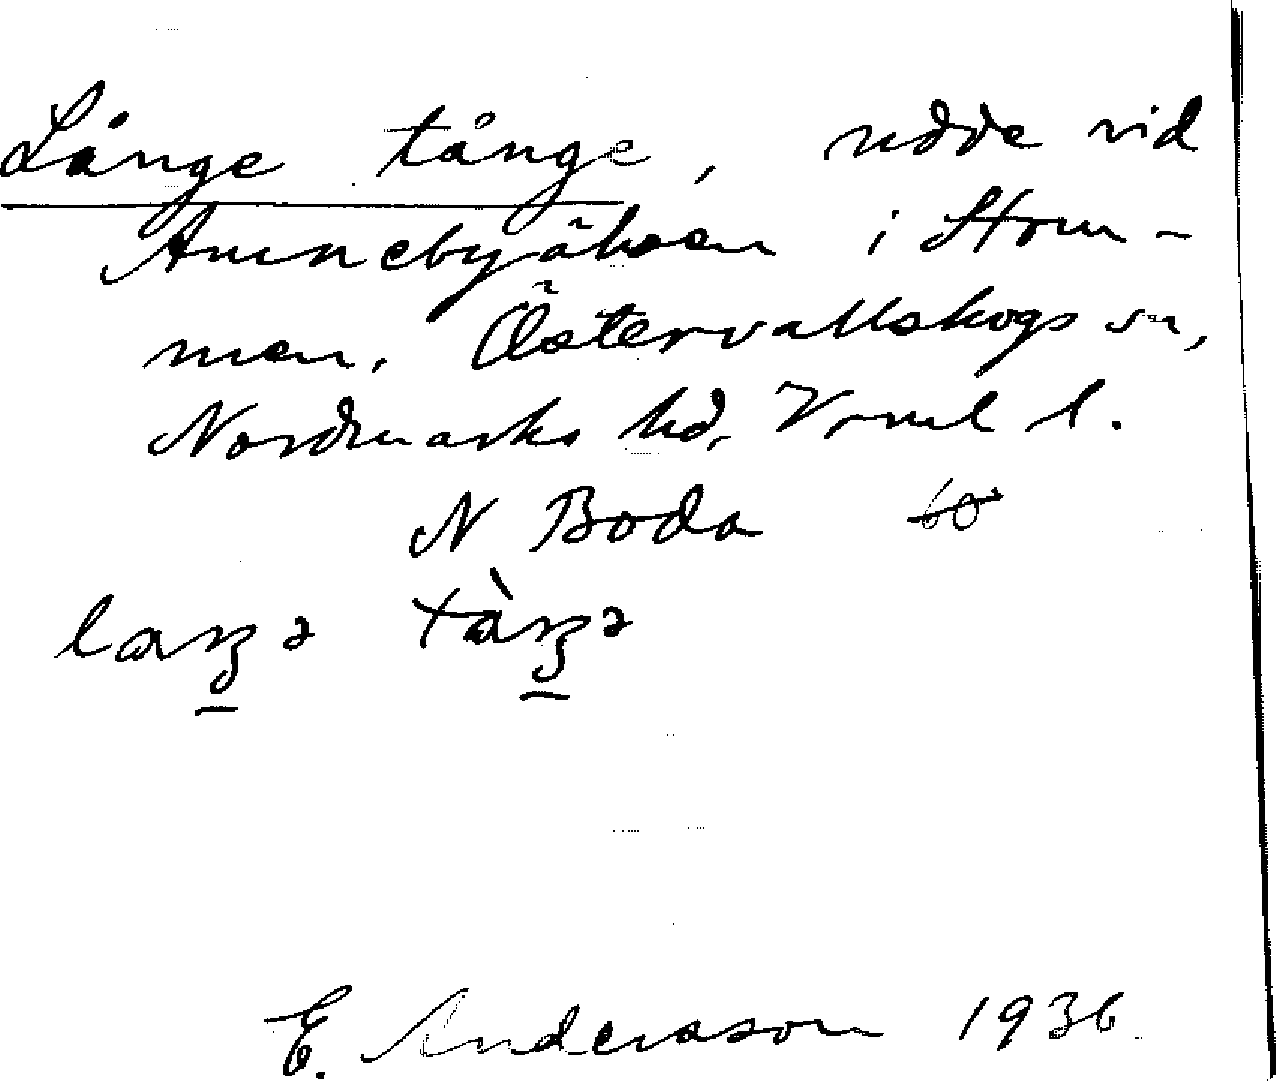 Långe tånge, udde vid
Amnebyälven i Strm-
men. Östervallskogs sn,
Nordmarks hd, Vrml l.
N Boda 60
laŋə tàŋə
E. Andersson 1936